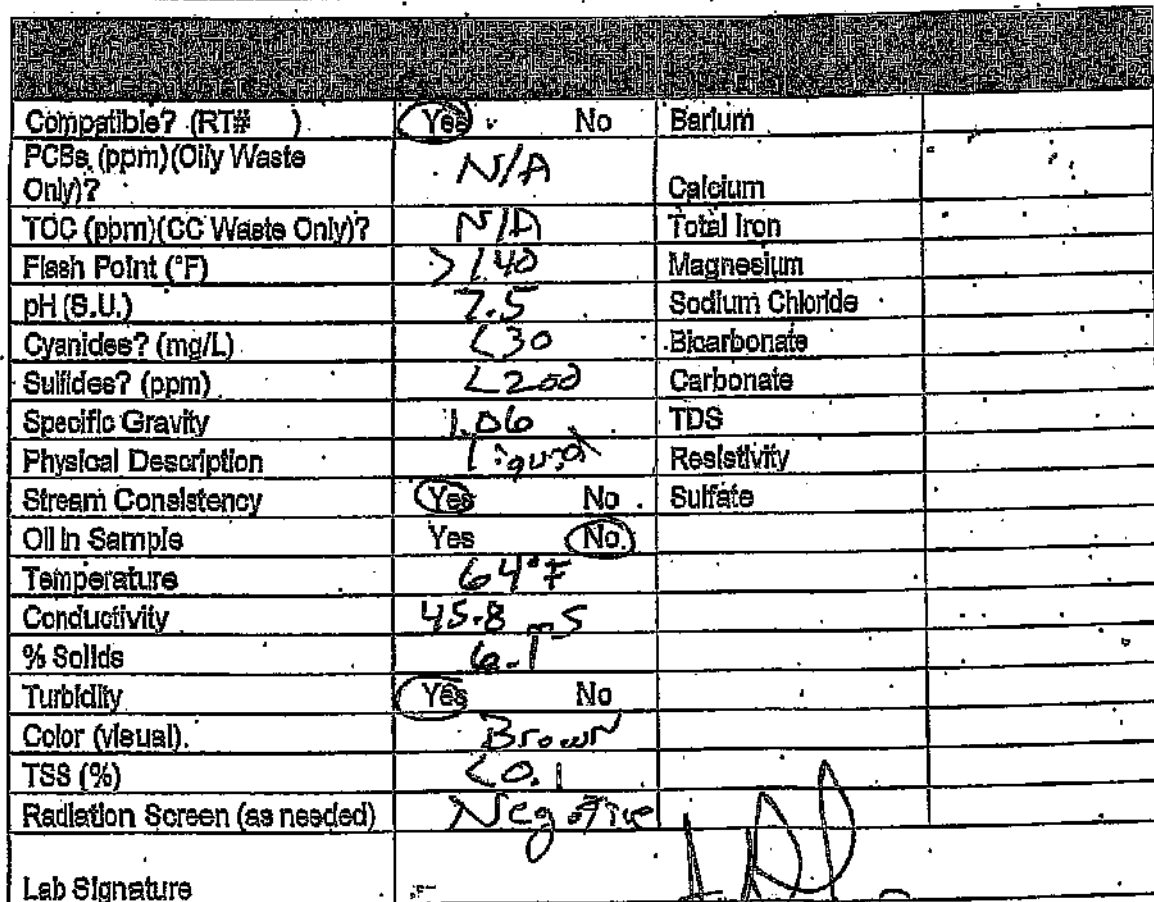 Compatible? (RT# ) Yes No Barium
PCBs (ppm)(Oily Waste
Only)? N/A Calcium
TOC (ppm)(CC Waste Only)? N/A Total Iron
Flash Point (°F) >140 Magnesium
pH (S.U.) 7.5 Sodium Chloride
Cyanides? (mg/L) <30 Bicarbonate
Sulfides? (ppm) <200 Carbonate
Specific Gravity 1.06 TDS
Physical Description Liquid Resistivity
Stream Consistency Yes No Sulfate
Oil in Sample Yes No
Temperature 64°F
Conductivity 45.8 mS
% Solids 6.1
Turbidity Yes No
Color (visual). Brown
TSS (%) <0.1
Radiation Screen (as needed) Negative
Lab Signature